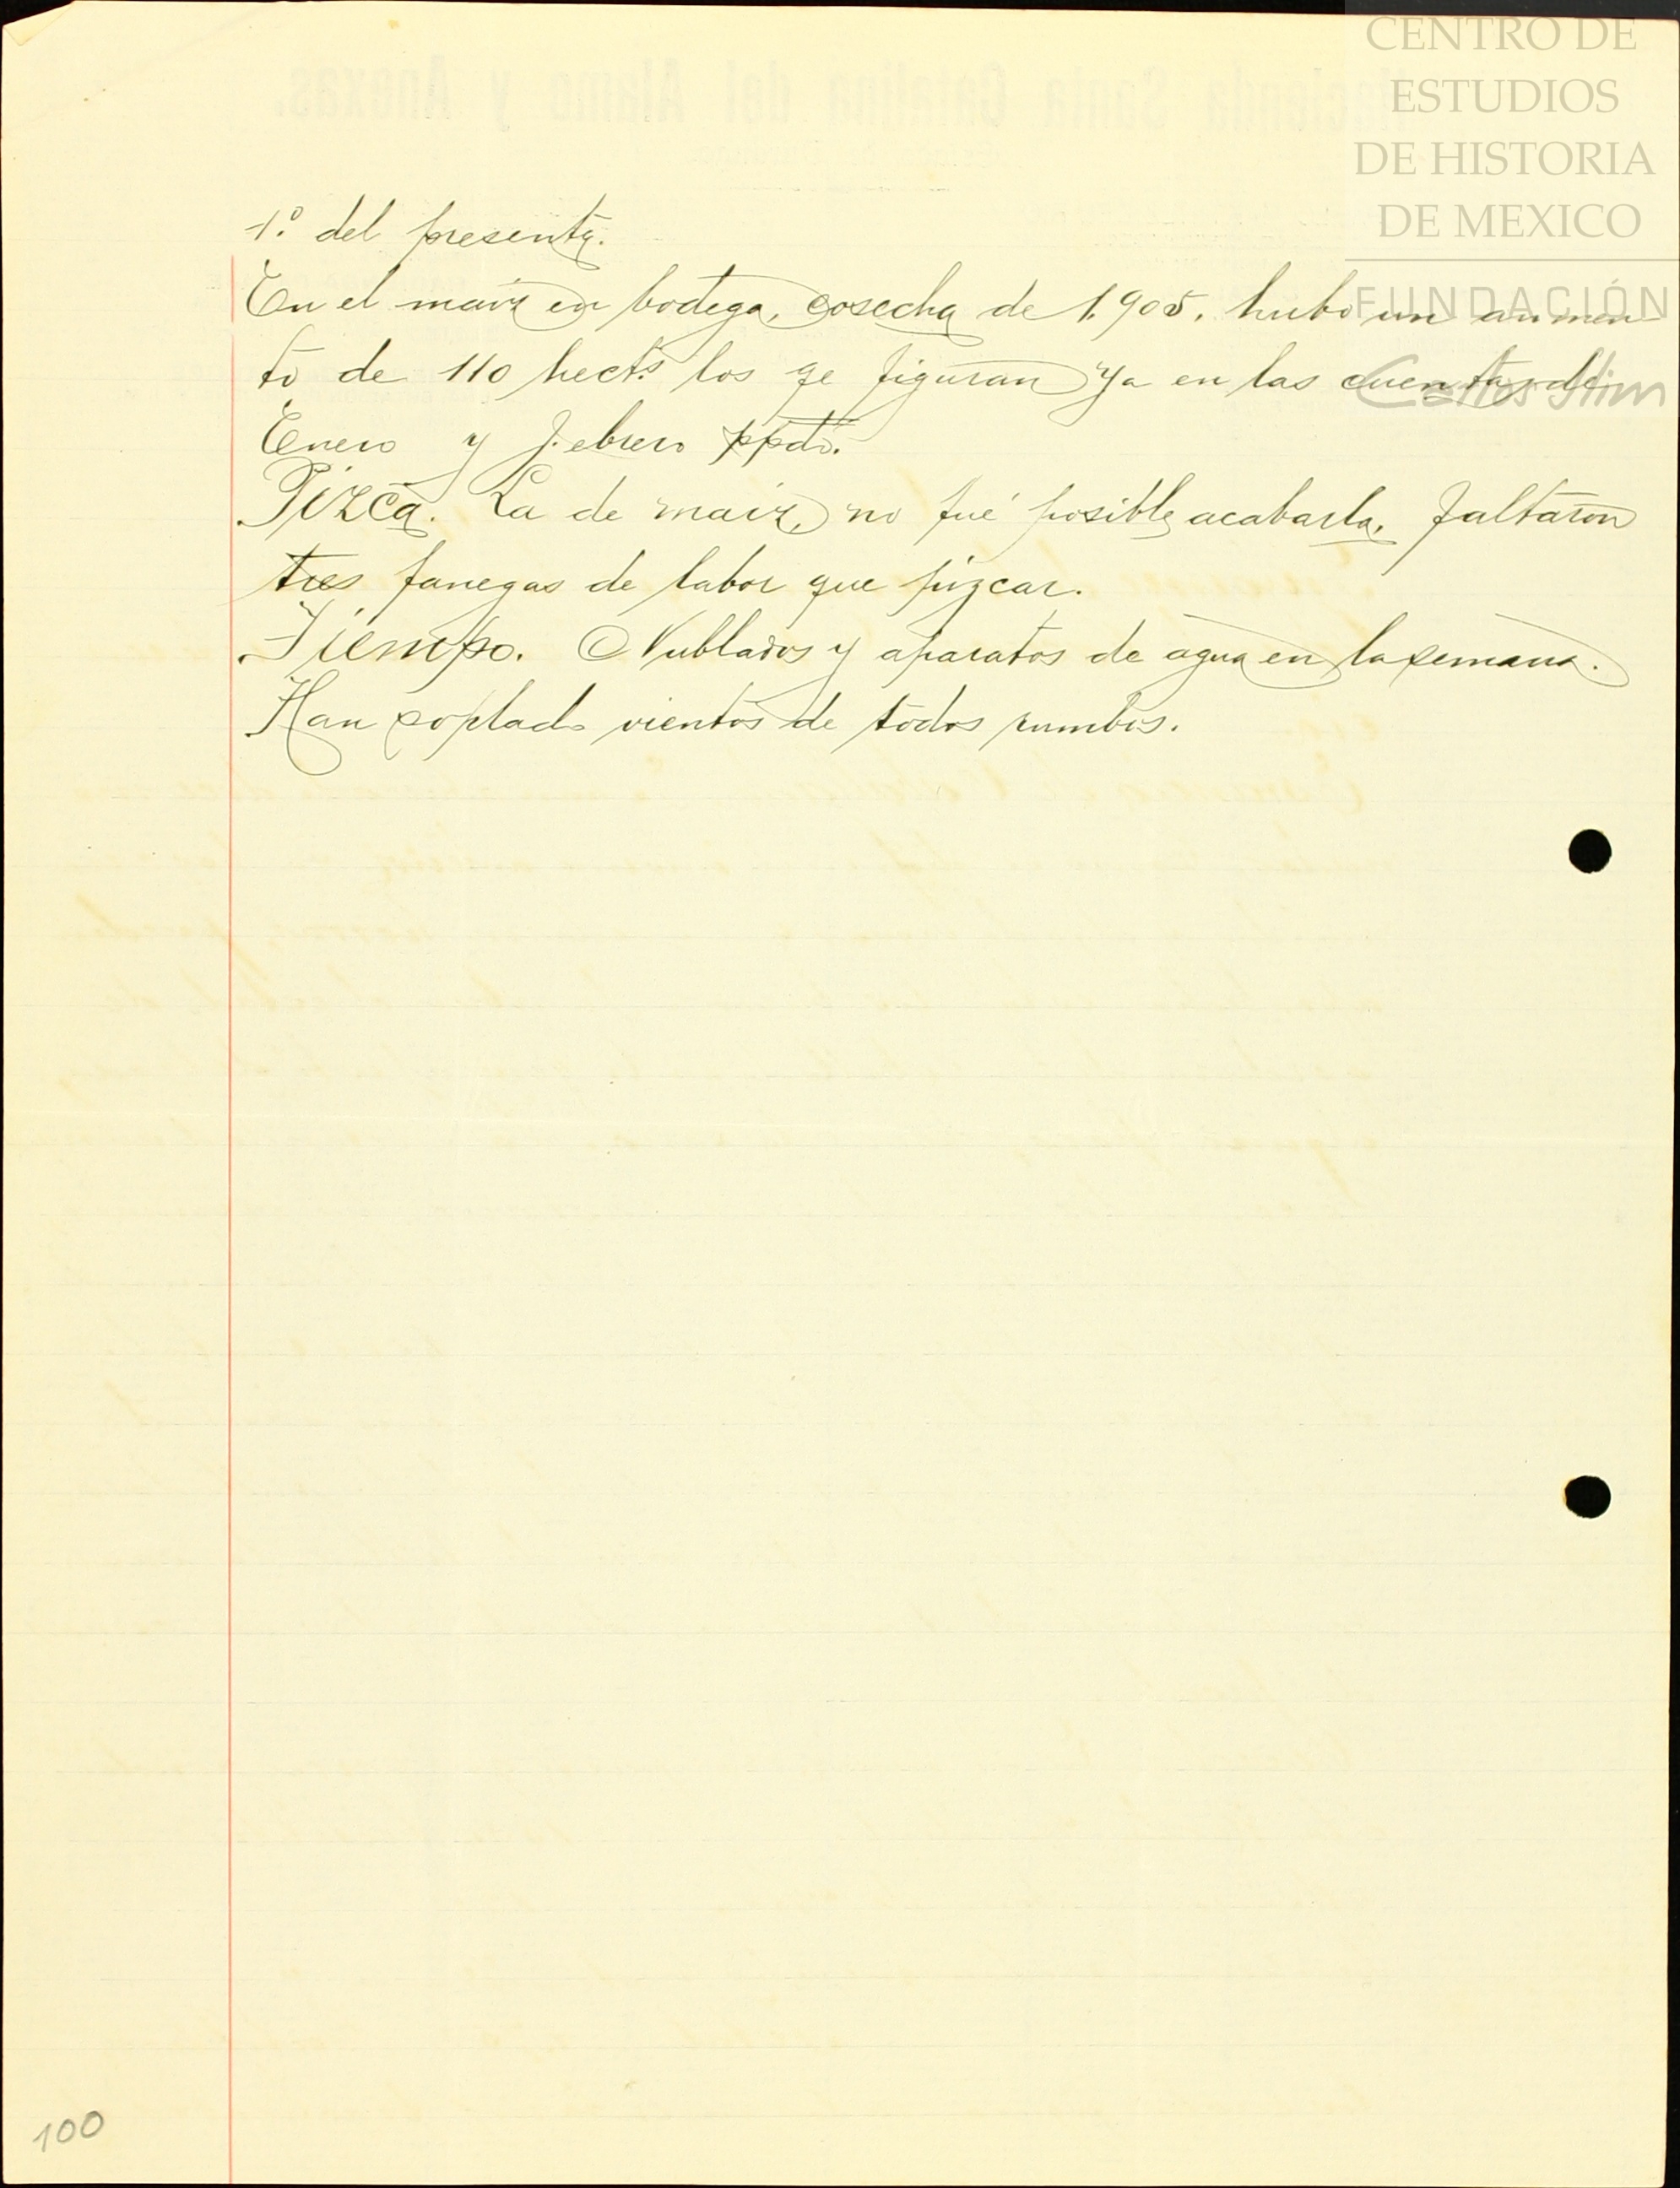 CENTRO DE
ESTUDIOS
DE HISTORIA
DE MEXICO
FUNDACIÓN
Carlos Slim
Hacienda Santa Catalina del Alamo y Anexas.
1º. del presente.
En el maiz en bodega, cosecha de 1,905, hubo un aumen
to de 110 hects. los qe figuran ya en las cuentas de
Enero y Febrero ppdo.
Pizca. La de maiz, no fué posible acabarla, faltaron
tres fanegas de labor que pizcar.
Tiempo. Nublados y aparatos de agua en la semana.
Han soplado vientos de todos rumbos.
100